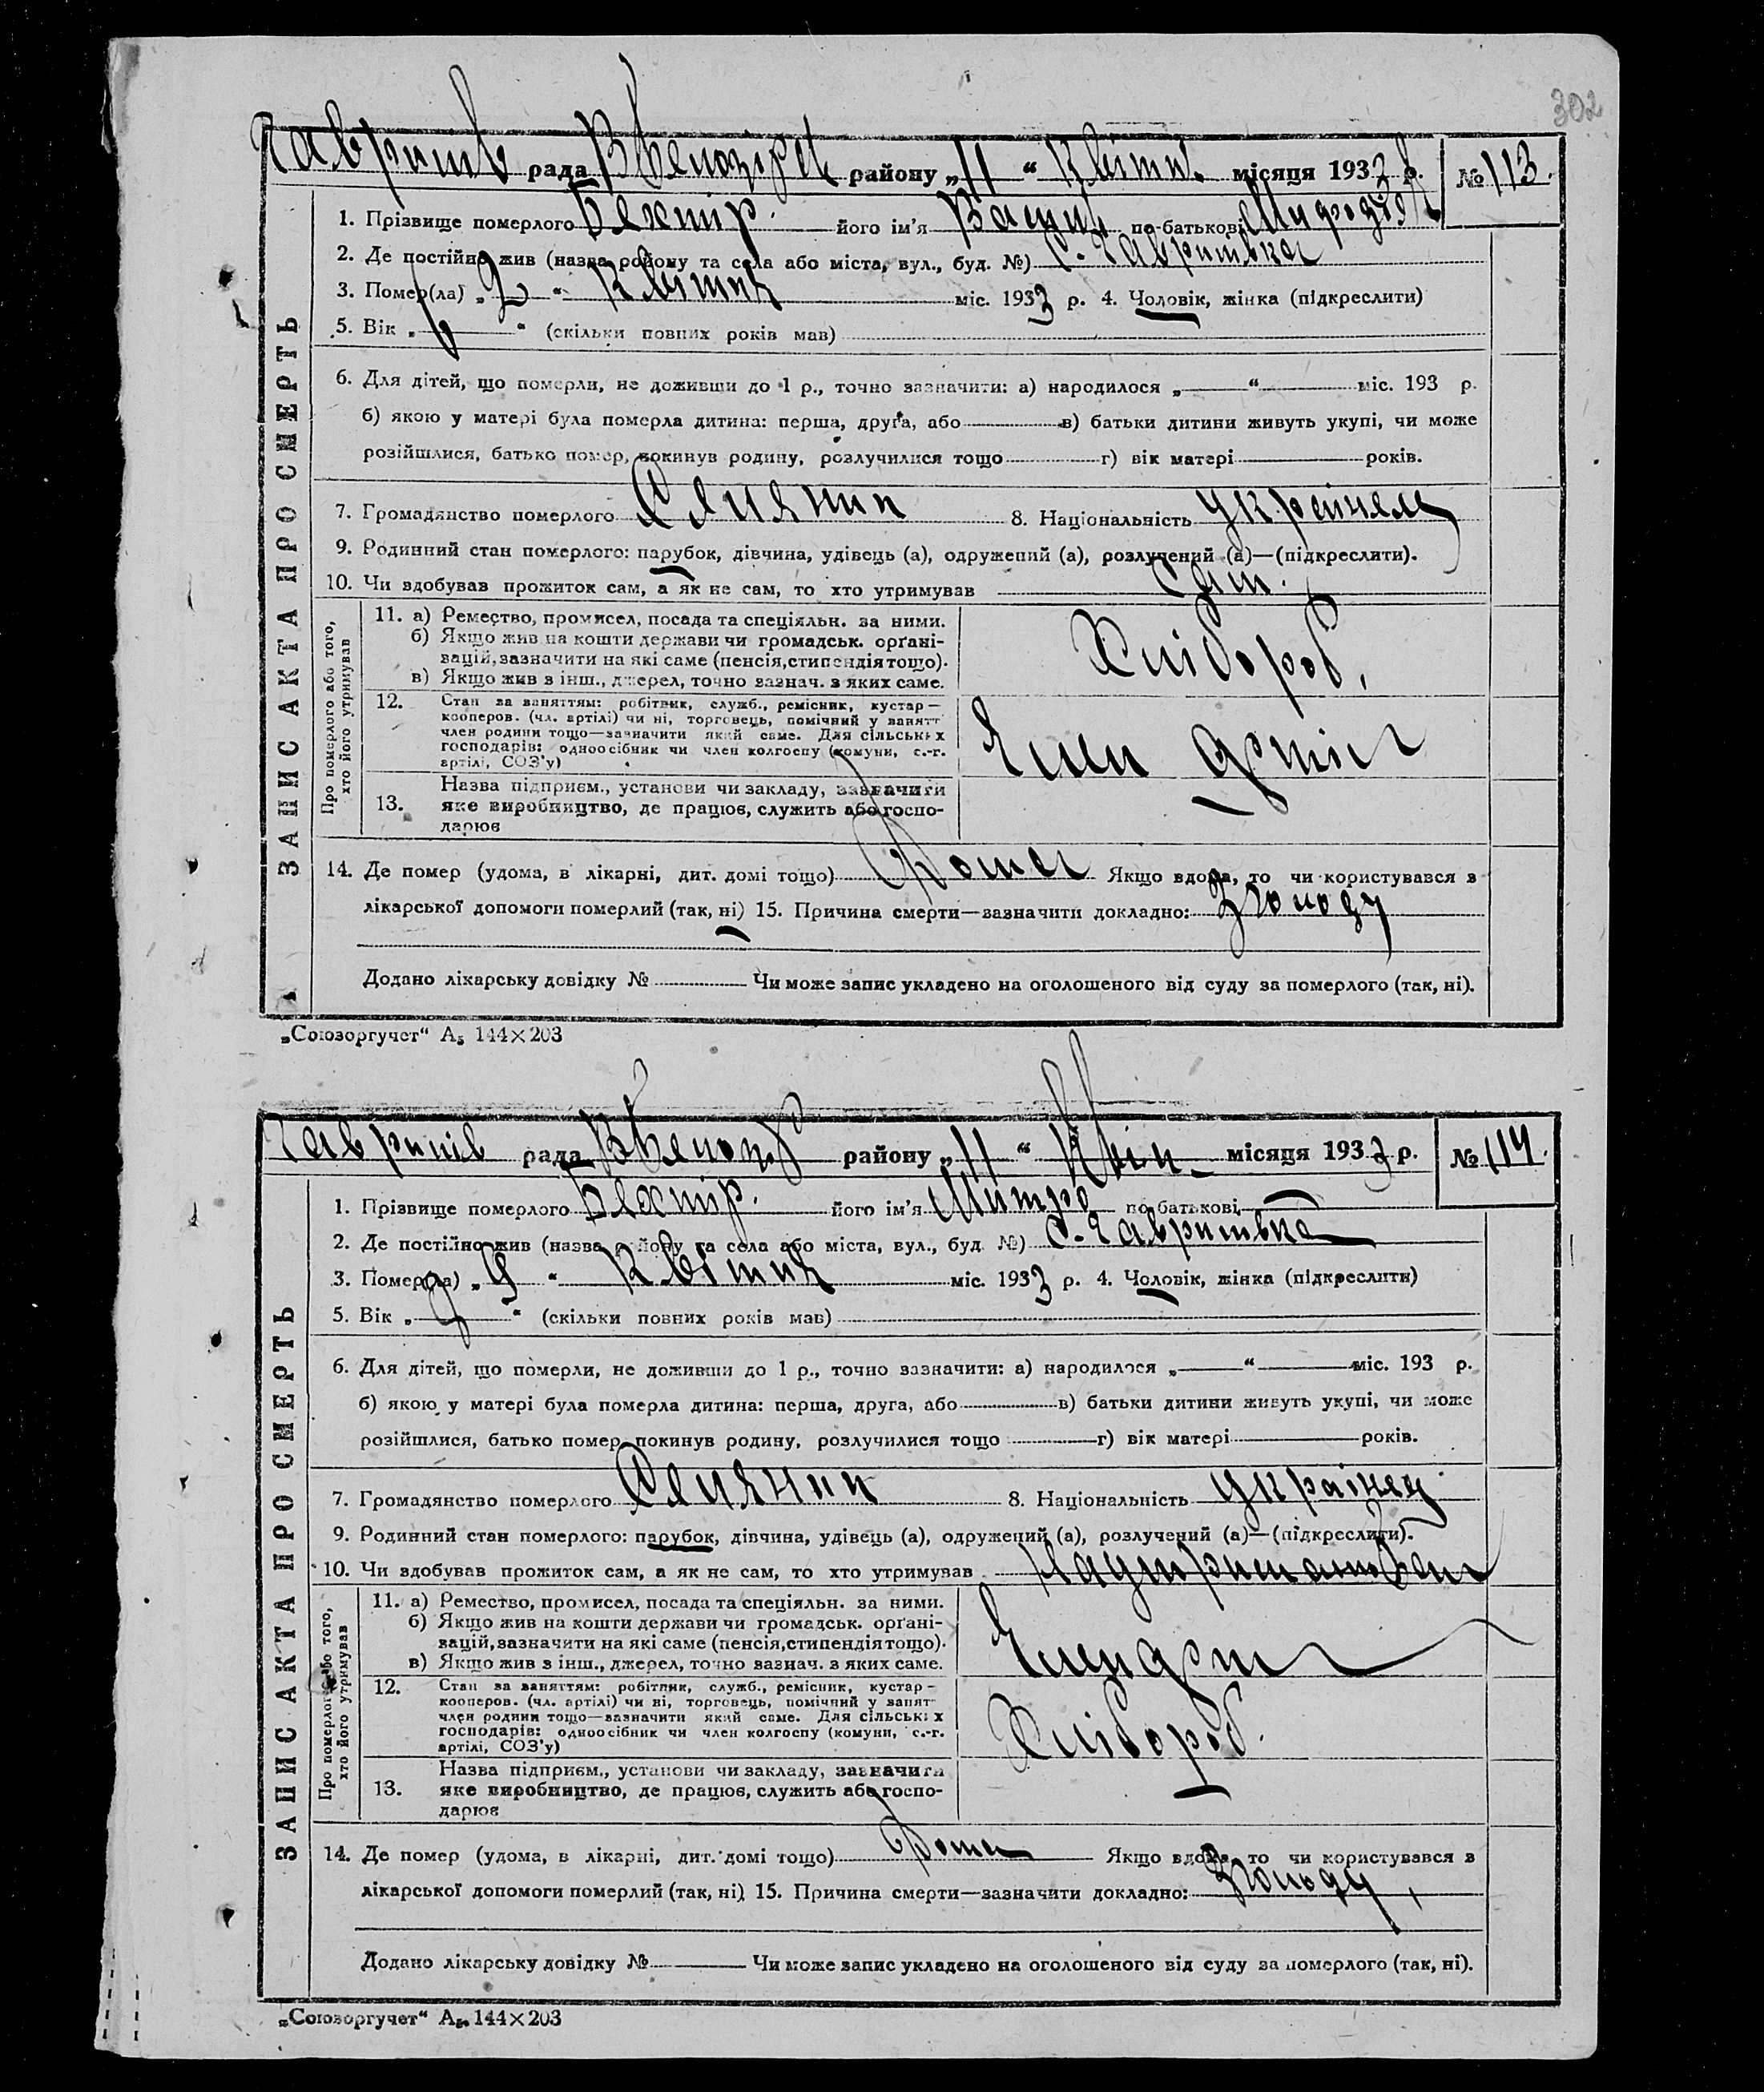 302
рада району „11 “ Квітн. місяця 1933 р. № 113.
1. Прізвище померлого Бехтір. його ім'я по-батькові
2. Де постійно жив (назва району та села або міста, вул., буд. №) С. Гавришівка
3. Помер(ла) „2 “ Квітня міс. 1933 р. 4. Чоловік, жінка (підкреслити)
5. Вік „ “ (скільки повних років мав)
6. Для дітей, що померли, не доживши до 1 р., точно зазначити: а) народилося „ “ міс. 193 р.
б) якою у матері була померла дитина: перша, друга, або в) батьки дитини живуть укупі, чи може
розійшлися, батько помер, покинув родину, розлучилися тощо г) вік матері років.
7. Громадянство померлого Селянин 8. Національність Українец
9. Родинний стан померлого: парубок, дівчина, удівець (а), одружений (а), розлучений (а)—(підкреслити).
10. Чи здобував прожиток сам, а як не сам, то хто утримував Сам.
11. а) Ремество, промисел, посада та спеціяльн. за ними.
б) Якщо жив на кошти держави чи громадськ. орґані-
зацій, зазначити на які саме (пенсія, стипендія тощо).
в) Якщо жив з інш., джерел, точно зазнач. з яких саме.
Хлібороб,
12. Стан за заняттям: робітник, служб., ремісник, кустар—
кооперов. (чл. артілі) чи ні, торговець, помічний у занятт
член родини тощо—зазначити який саме. Для сільських
господарів: одноосібник чи член колгоспу (комуни, с.-г.
артілі, СОЗ'у)
Член
13. Назва підприєм., установи чи закладу, зазначити
яке виробництво, де працює, служить або госпо-
дарює
14. Де помер (удома, в лікарні, дит. домі тощо) Дома Якщо вдома, то чи користувався з
лікарської допомоги померлий (так, ні) 15. Причина смерти—зазначити докладно: З голоду
Додано лікарську довідку № Чи може запис укладено на оголошеного від суду за померлого (так, ні).
ЗАПИС АКТА ПРО СМЕРТЬ
Про померлого або того,
хто його утримував
„Союзоргучет“ А₅ 144×203
рада району „11 “ Квітн місяця 1933 р. № 114.
1. Прізвище померлого Бехтір. його ім'я Митро по батькові
2. Де постійно жив (назва району та села або міста, вул., буд. №) С. Гавришівка
3. Помер(ла) „9 “ Квітня міс. 1933 р. 4. Чоловік, жінка (підкреслити)
5. Вік „ “ (скільки повних років мав)
6. Для дітей, що померли, не доживши до 1 р., точно зазначити: а) народилося „ “ міс. 193 р.
б) якою у матері була померла дитина: перша, друга, або в) батьки дитини живуть укупі, чи може
розійшлися, батько помер, покинув родину, розлучилися тощо г) вік матері років.
7. Громадянство померлого Селянин 8. Національність Українец
9. Родинний стан померлого: парубок, дівчина, удівець (а), одружений (а), розлучений (а)—(підкреслити).
10. Чи здобував прожиток сам, а як не сам, то хто утримував
11. а) Ремество, промисел, посада та спеціяльн. за ними.
б) Якщо жив на кошти держави чи громадськ. орґані-
зацій, зазначити на які саме (пенсія, стипендія тощо).
в) Якщо жив з інш., джерел, точно зазнач. з яких саме.
Член
12. Стан за заняттям: робітник, служб., ремісник, кустар—
кооперов. (чл. артілі) чи ні, торговець, помічний у занят
член родини тощо—зазначити який саме. Для сільських
господарів: одноосібник чи член колгоспу (комуни, с.-г.
артілі, СОЗ'у)
Хлібороб.
13. Назва підприєм., установи чи закладу, зазначити
яке виробництво, де працює, служить або госпо-
дарює
14. Де помер (удома, в лікарні, дит. домі тощо) Дома Якщо вдома, то чи користувався з
лікарської допомоги померлий (так, ні) 15. Причина смерти—зазначити докладно: З голоду,
Додано лікарську довідку № Чи може запис укладено на оголошеного від суду за померлого (так, ні).
ЗАПИС АКТА ПРО СМЕРТЬ
Про померлого або того,
хто його утримував
„Союзоргучет“ А₅ 144×203